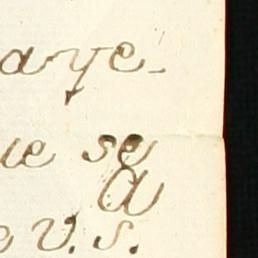 aye.
ue se
a
e V. S.